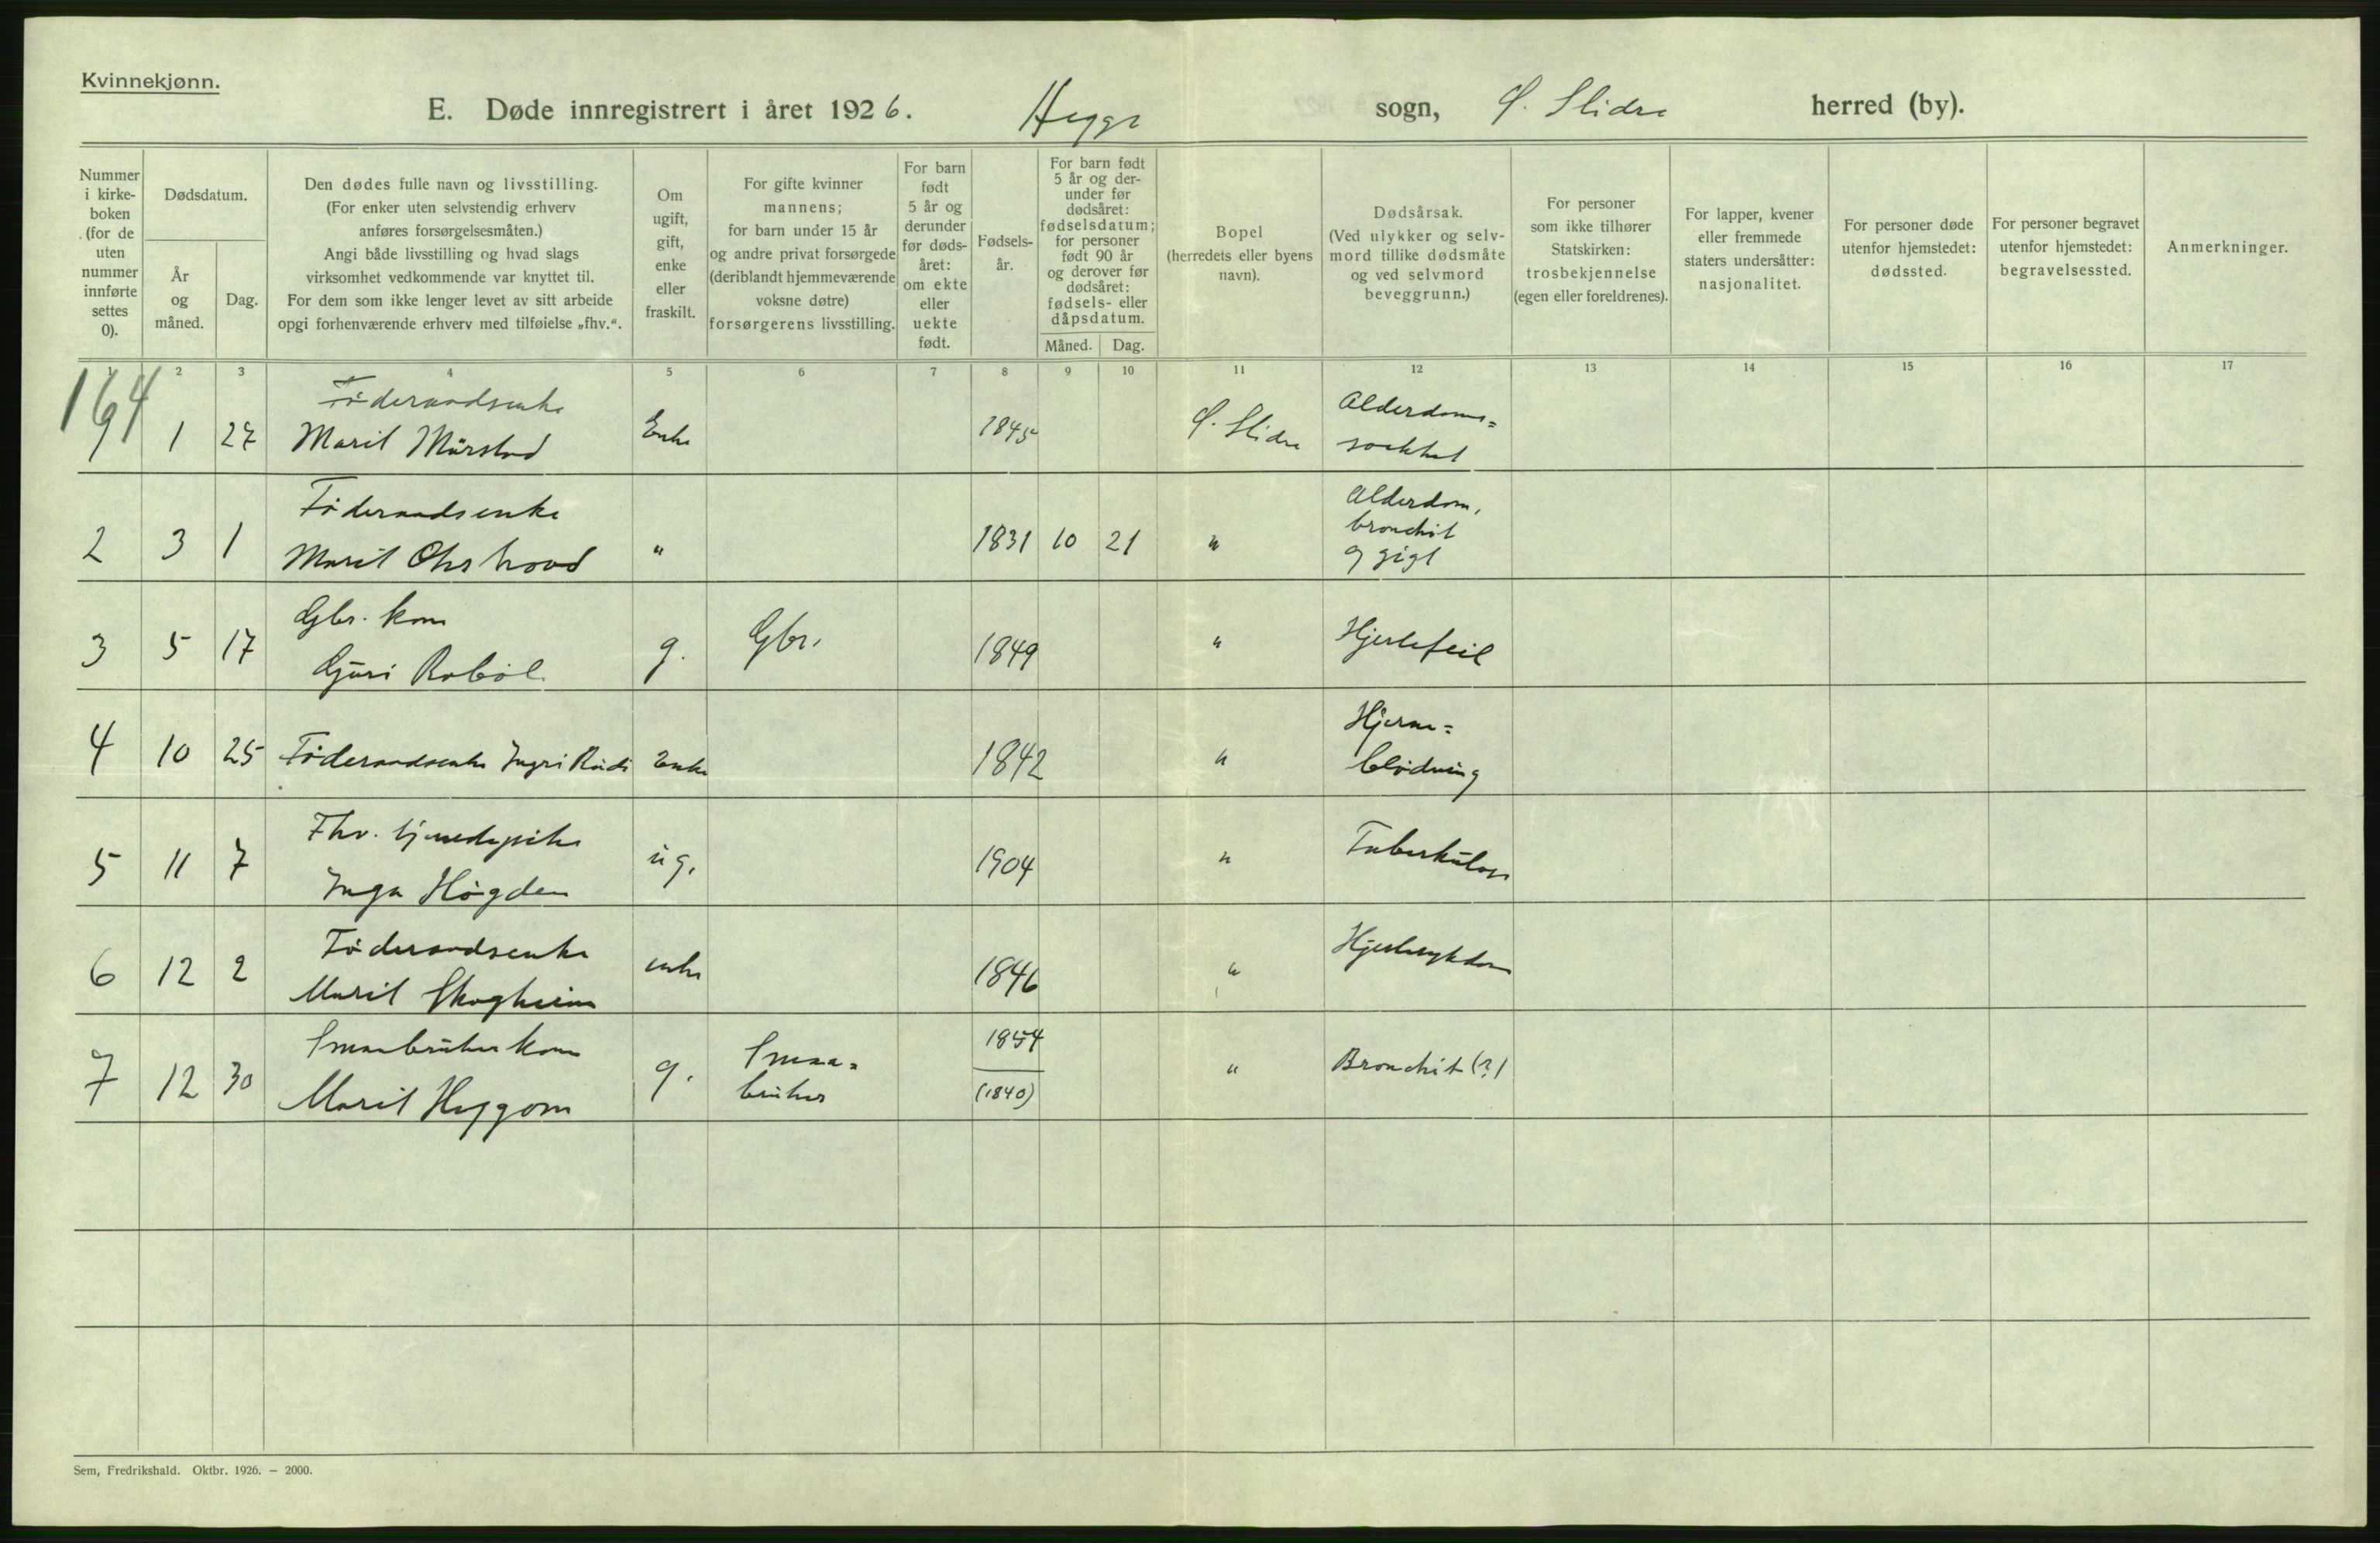 Kvinnekjønn.
E. Døde innregistrert i året 1926. Hegge sogn, Ø. Slidre herred (by).
Nummer i kirke-boken (for de uten nummer innførte settes 0).
Dødsdatum.
År og måned.
Dag.
Den dødes fulle navn og livsstilling.
(For enker uten selvstendig erhverv
anføres forsørgelsesmåten.)
Angi både livsstilling og hvad slags
virksomhet vedkommende var knyttet til.
For dem som ikke lenger levet av sitt arbeide
opgi forhenværende erhverv med tilføielse „fhv.“.
Om
ugift,
gift,
enke
eller
fraskilt.
For gifte kvinner
mannens;
for barn under 15 år
og andre privat forsørgede
(deriblandt hjemmeværende
voksne døtre)
forsørgerens livsstilling.
For barn
født
5 år og
derunder
før døds-
året:
om ekte
eller
uekte
født.
Fødsels-
år.
For barn født
5 år og der-
under før
dødsåret:
fødselsdatum;
for personer
født 90 år
og derover før
dødsåret:
fødsels- eller
dåpsdatum.
Måned. Dag.
Bopel
(herredets eller byens
navn).
Dødsårsak.
(Ved ulykker og selv-
mord tillike dødsmåte
og ved selvmord
beveggrunn.)
For personer
som ikke tilhører
Statskirken:
trosbekjennelse
(egen eller foreldrenes).
For lapper, kvener
eller fremmede
staters undersåtter:
nasjonalitet.
For personer døde
utenfor hjemstedet:
dødssted.
For personer begravet
utenfor hjemstedet:
begravelsessted.
Anmerkninger.
1 2 3 4 5 6 7 8 9 10 11 12 13 14 15 16 17
164
Föderaadsenke Alderdoms=
1 1 27 Marit Mürstad Enke 1845 Ø. Slidre
Föderaadsenke Alderdom,
bronchit
2 3 1 Marit " 1831 10 21 " og gigt
Gbr. kone
3 5 17 Guri Robøl g. Gbr. 1849 " Hjertefeil
Hjerne=
4 10 25 Föderaadsenke Ingri Rudi Enke 1842 " blødning
Fhv. tjenestepike
5 11 7 Inga Högden ug. 1904 " Tuberkulose
Föderaadsenke
6 12 2 Marit Skogheim enke 1846 " Hjertesykdom
Smaabruker kone Smaa= 1854
7 12 30 Marit Heggom g. bruker (1840) " Bronchit (?)
Sem, Fredrikshald. Oktbr. 1926. — 2000.